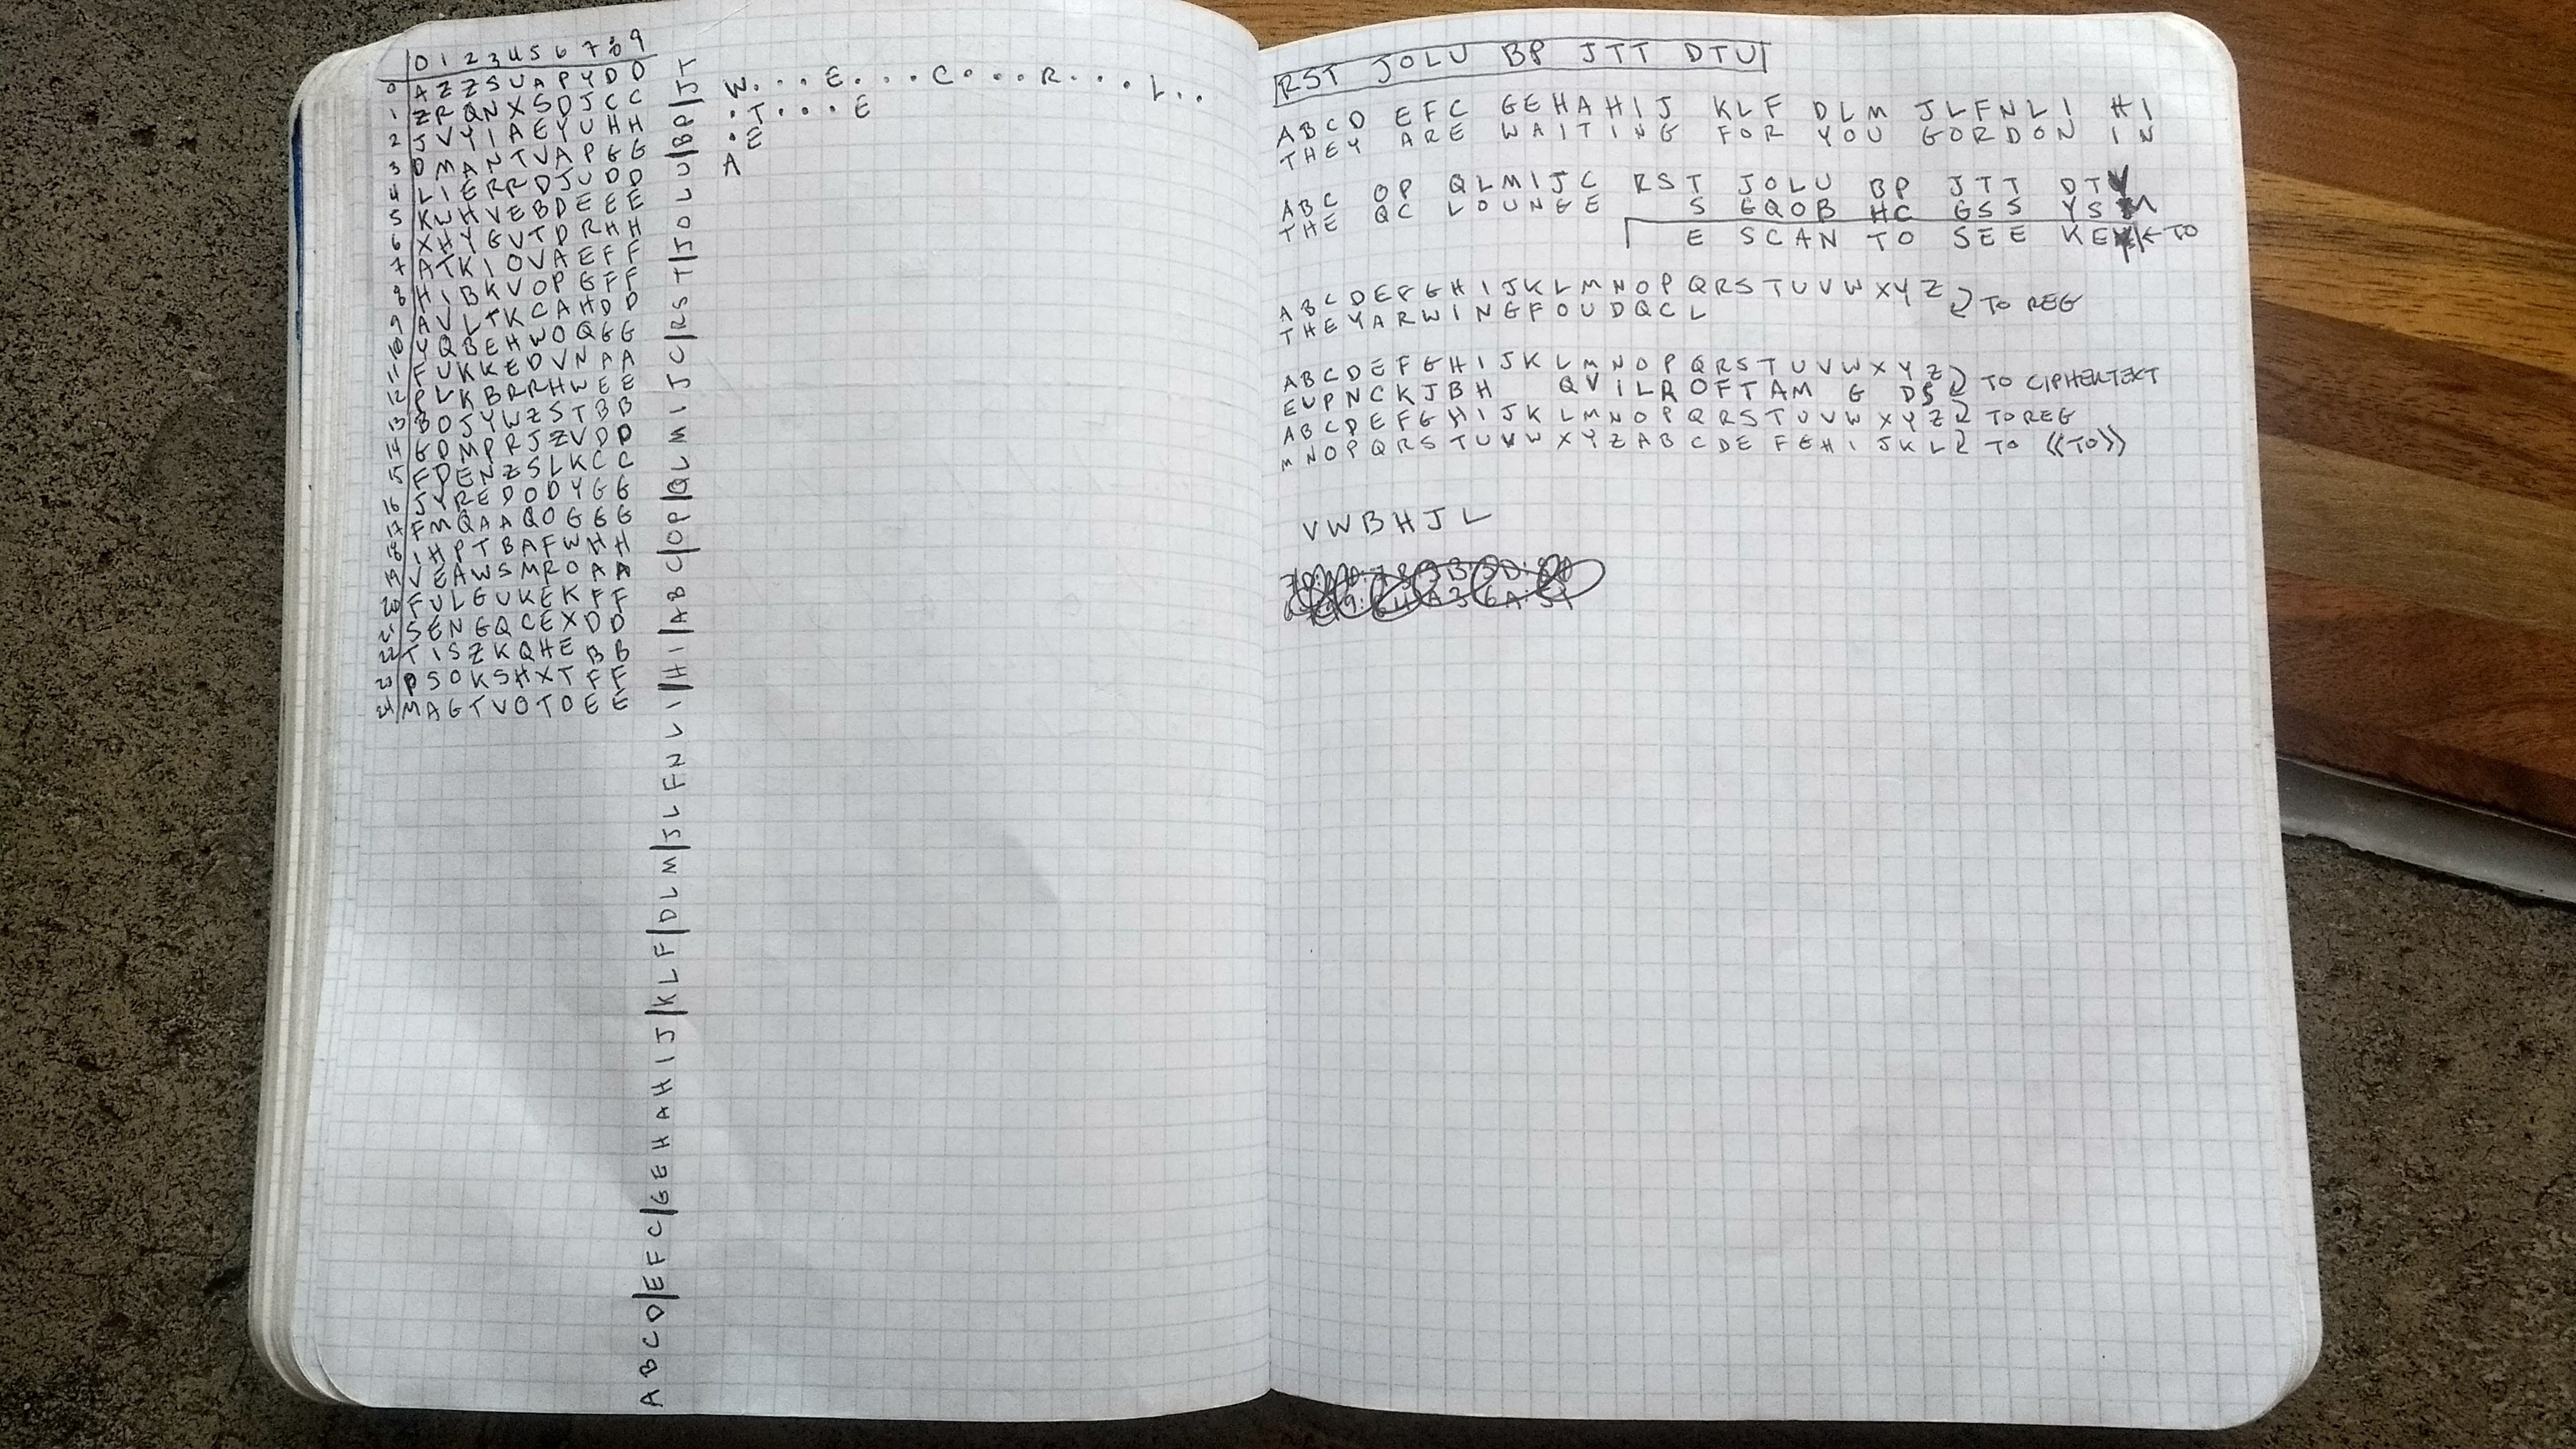 0 1 2 3 4 5 6 7 8 9
0 A Z Z S U A P Y D D
1 Z R Q N X S D J C C
2 J V Y I A E Y U H H
3 O M A N T V A P G G
4 L I E R R D J U D D
5 K W H V E B D E E E
6 X H Y G V T D R H H
7 A T K I O V A E F F
8 H I B K V O P G F F
9 A V L T K C A H D D
10 Y Q B E H W O Q G G
11 F U K K E D V N A A
12 P L K B R R H W E E
13 B O J Y W Z S T B B
14 G D M P R J Z V D D
15 F D E N Z S L K C C
16 J Y R E D O D Y G G
17 F M Q A A Q O G G G
18 I H P T B A F W H H
19 V E A W S M R O A A
20 F U L G U K E K F F
21 S E N G Q C E X D D
22 T I S Z K Q H E B B
23 P S O K S H X T F F
24 M A G T V O T O E E
A B C D | E F C | G E H A H I J | K L F | D L M | J L F N L I | H I | A B C | O P | Q L M I J C | R S T | J O L U | B P | J T
W . . . E . . . C . . . R . . . L . .
. T . . . E
. E
A
RST JOLU BP JTT DTU
ABCD EFC GEHAHIJ KLF DLM JLFNLI HI
THEY ARE WAITING FOR YOU GORDON IN
ABC OP QLMIJC RST JOLU BP JTT DT
THE QC LOUNGE S GQOB HC GSS YS
E SCAN TO SEE KEY ← TO
A B C D E F G H I J K L M N O P Q R S T U V W X Y Z
T H E Y A R W I N G F O U D Q C L TO REG
A B C D E F G H I J K L M N O P Q R S T U V W X Y Z
E U P N C K J B H Q V I L R O F T A M G D S TO CIPHERTEXT
A B C D E F G H I J K L M N O P Q R S T U V W X Y Z TO REG
M N O P Q R S T U V W X Y Z A B C D E F G H I J K L TO «TO»
VWBHJL